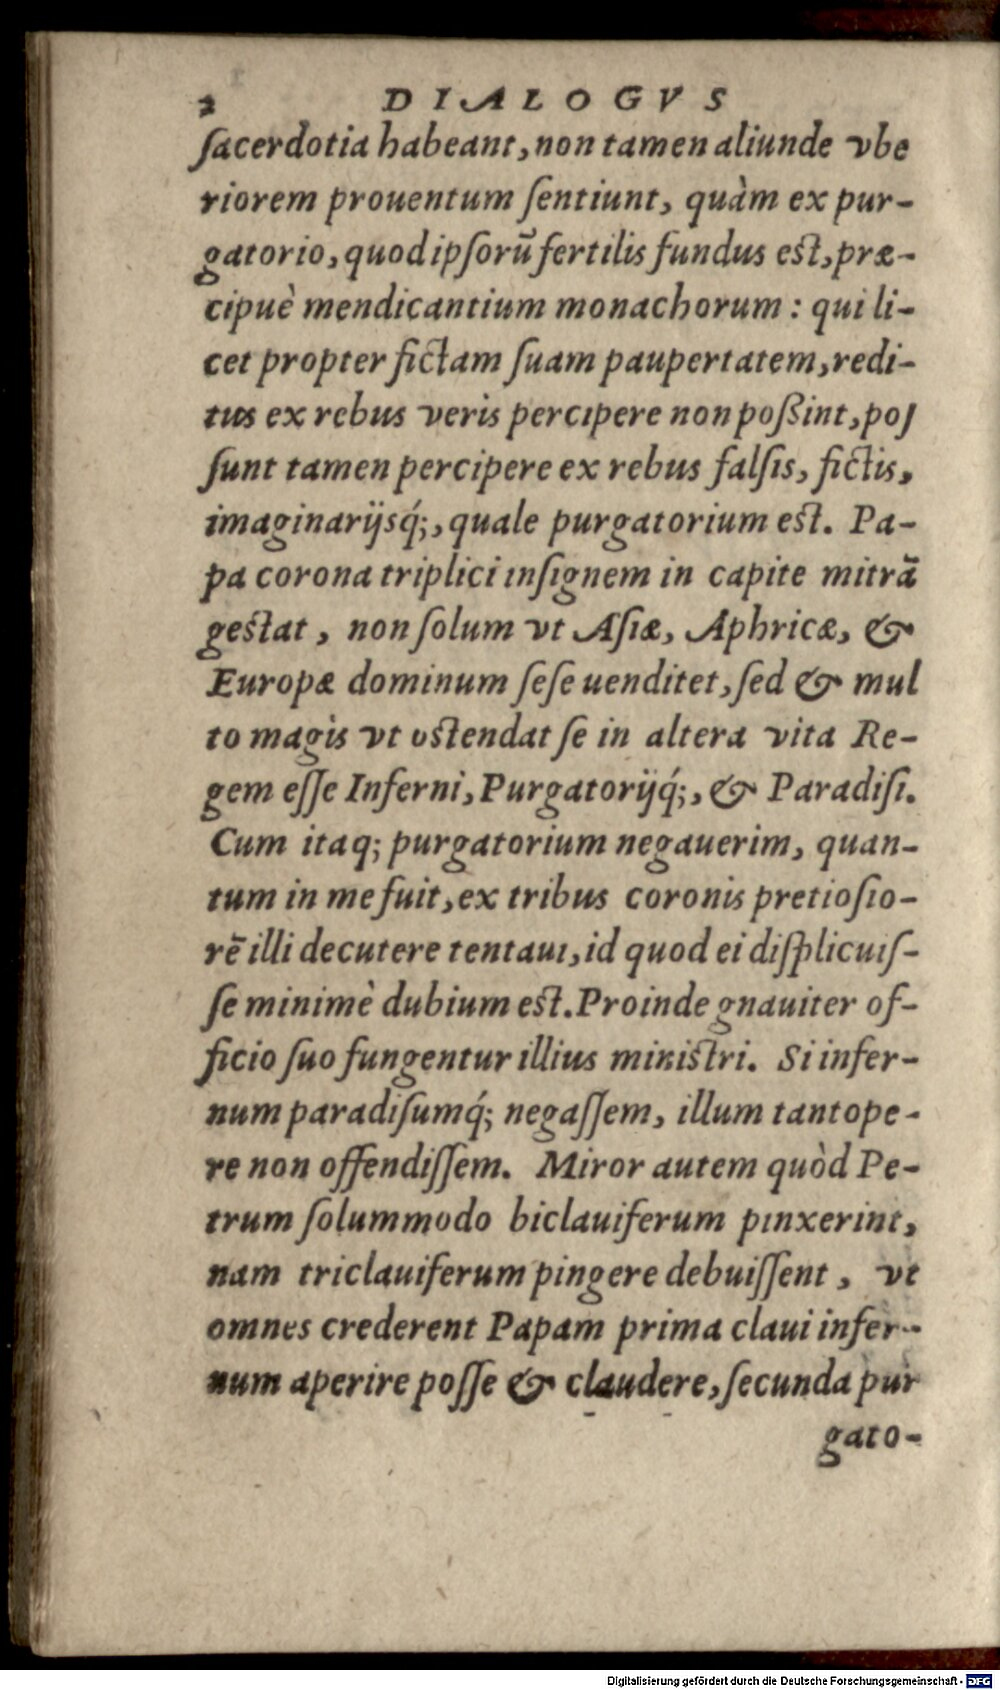 2 DIALOGVS
ſacerdotia habeant, non tamen aliunde vbe
riorem prouentum ſentiunt, quàm ex pur-
gatorio, quod ipſorũ fertilis fundus eſt, præ-
cipuè mendicantium monachorum: qui li-
cet propter fictam ſuam paupertatem, redi-
tus ex rebus veris percipere non poßint, poſ
ſunt tamen percipere ex rebus falſis, fictis,
imaginarijsq́;, quale purgatorium eſt. Pa-
pa corona triplici inſignem in capite mitrã
geſtat, non ſolum vt Aſiæ, Aphricæ, &
Europæ dominum ſeſe uenditet, ſed & mul
to magis vt oſtendat ſe in altera vita Re-
gem eſſe Inferni, Purgatorijq́;, & Paradiſi.
Cum itaq; purgatorium negauerim, quan-
tum in me fuit, ex tribus coronis pretioſio-
rẽ illi decutere tentaui, id quod ei diſplicuiſ-
ſe minimè dubium eſt. Proinde gnauiter of-
ficio ſuo fungentur illius miniſtri. Si infer-
num paradiſumq́; negaſſem, illum tantope-
re non offendiſſem. Miror autem quòd Pe-
trum ſolummodo biclauiferum pinxerint,
nam triclauiferum pingere debuiſſent, vt
omnes crederent Papam prima claui infer-
num aperire poſſe & claudere, ſecunda pur
gato-
Digitalisierung gefördert durch die Deutsche Forschungsgemeinschaft - DFG